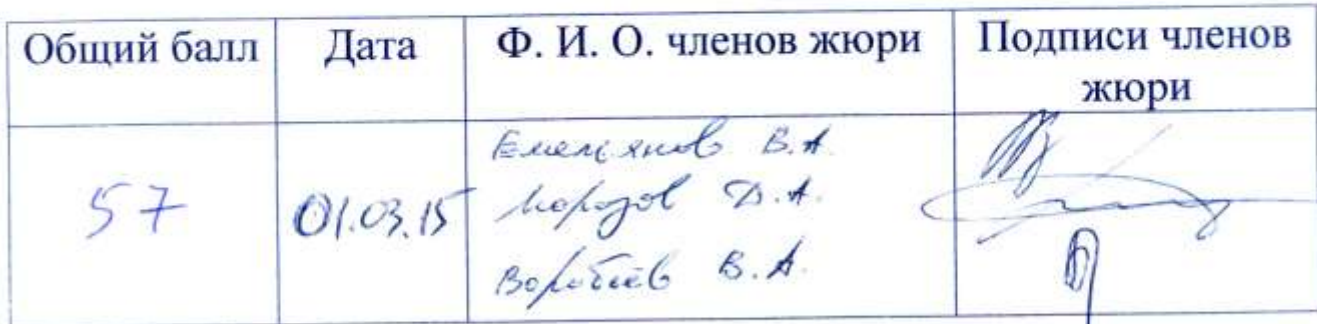 Общий балл
Дата
Ф. И. О. членов жюри
Подписи членов
жюри
57
01.03.15
Емельянов В.А.
Морозов Д.А.
Воробьев В.А.